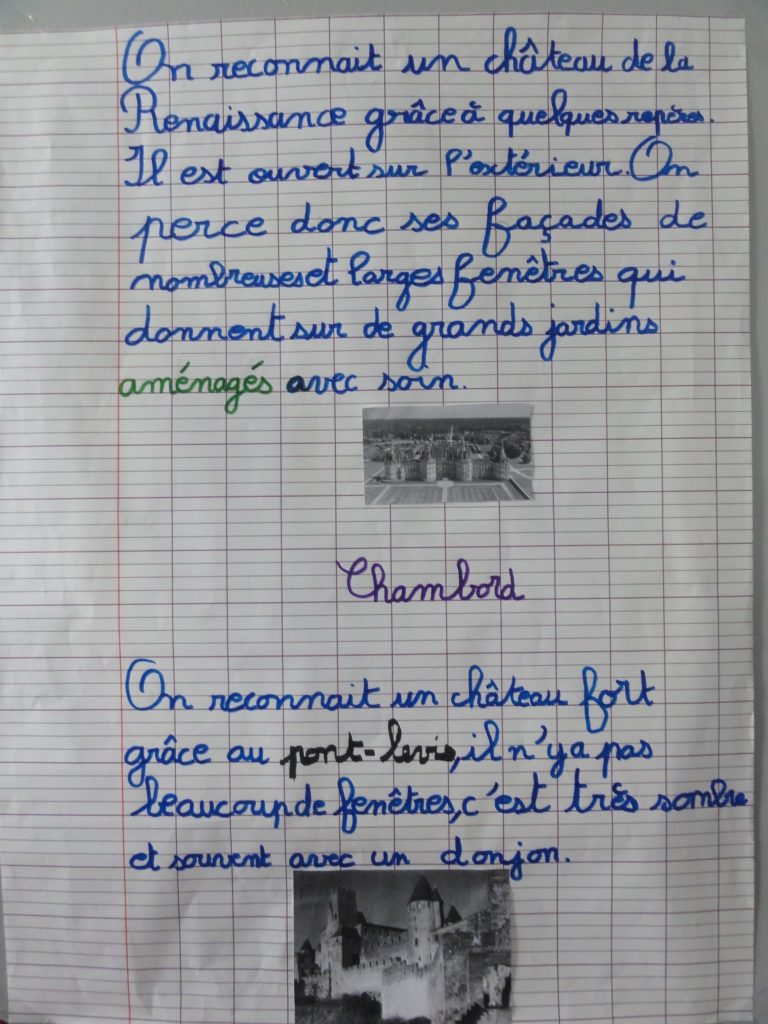 On reconnait un château de la
Renaissance grâce à quelques repères.
Il est ouvert sur l'extérieur. On
perce donc ses façades de
nombreuses et larges fenêtres qui
donnent sur de grands jardins
aménagés avec soin.
Chambord
On reconnait un château fort
grâce au pont-levis, il n'y a pas
beaucoup de fenêtres, c'est très sombre
et souvent avec un donjon.